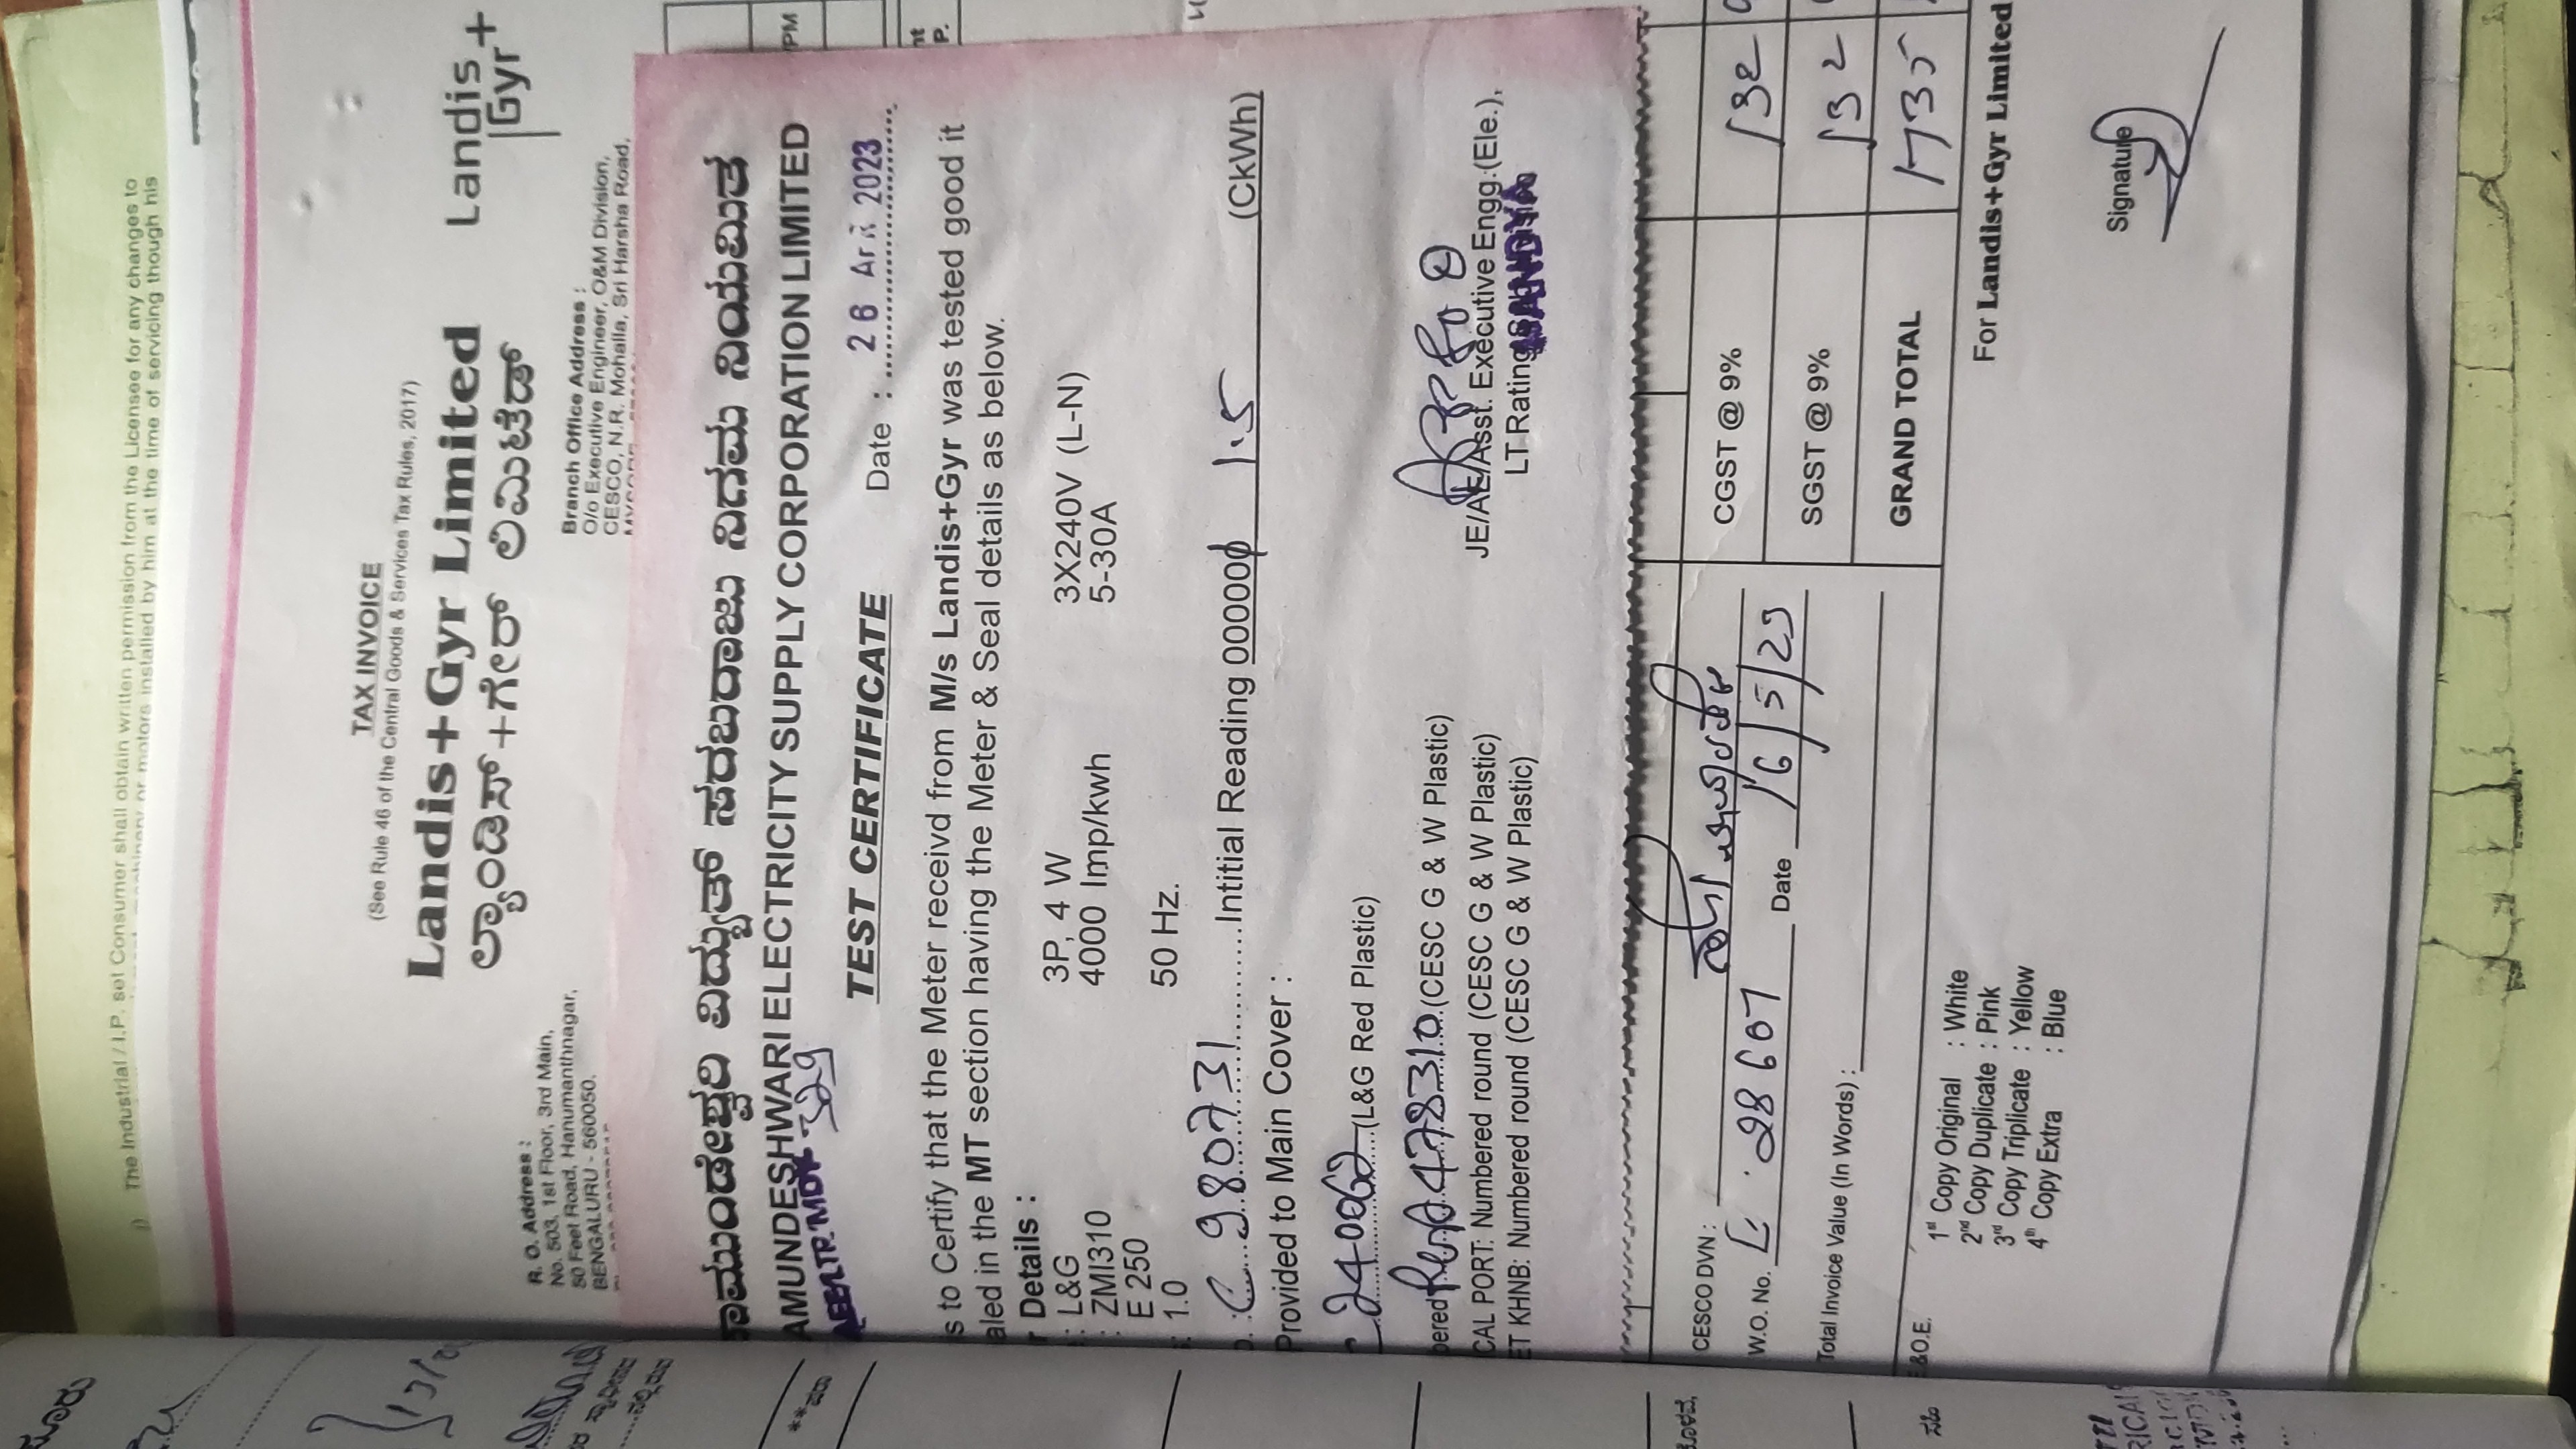 The Industrial / I.P. set Consumer shall obtain written permission from the Licensee for any changes to
machinery or motors installed by him at the time of servicing though his
TAX INVOICE
(See Rule 46 of the Central Goods & Services Tax Rules, 2017)
Landis+Gyr Limited
ಲ್ಯಾಂಡಿಸ್+ಗೇರ್ ಲಿಮಿಟೆಡ್
Landis+
Gyr+
R. O. Address :
No. 503, 1st Floor, 3rd Main,
50 Feet Road, Hanumanthnagar,
BENGALURU - 560050.
Branch Office Address :
O/o Executive Engineer, O&M Division,
CESCO, N.R. Mohalla, Sri Harsha Road,
ಾಮುಂಡೇಶ್ವರಿ ವಿದ್ಯುತ್ ಸರಬರಾಜು ನಿಗಮ ನಿಯಮಿತ
AMUNDESHWARI ELECTRICITY SUPPLY CORPORATION LIMITED
TEST CERTIFICATE
Date : 26 2023
s to Certify that the Meter receivd from M/s Landis+Gyr was tested good it
aled in the MT section having the Meter & Seal details as below.
r Details :
: L&G 3P, 4 W 3X240V (L-N)
: ZMI310 4000 Imp/kwh 5-30A
E 250
: 1.0 50 Hz.
C 980731 Intitial Reading 000000 1.5 (CkWh)
Provided to Main Cover :
240062 (L&G Red Plastic)
bered 478310 (CESC G & W Plastic)
CAL PORT: Numbered round (CESC G & W Plastic)
ET KHNB: Numbered round (CESC G & W Plastic)
JE/AE/Asst. Executive Engg.(Ele.),
LT Rating
MANDYA
CESCO DVN :
W.O. No. 28607 Date 16/5/23
Total Invoice Value (In Words) :
CGST @ 9% 132
SGST @ 9% 132
GRAND TOTAL 1735
&O.E.
For Landis+Gyr Limited
1st Copy Original : White
2nd Copy Duplicate : Pink
3rd Copy Triplicate : Yellow
4th Copy Extra : Blue
Signature